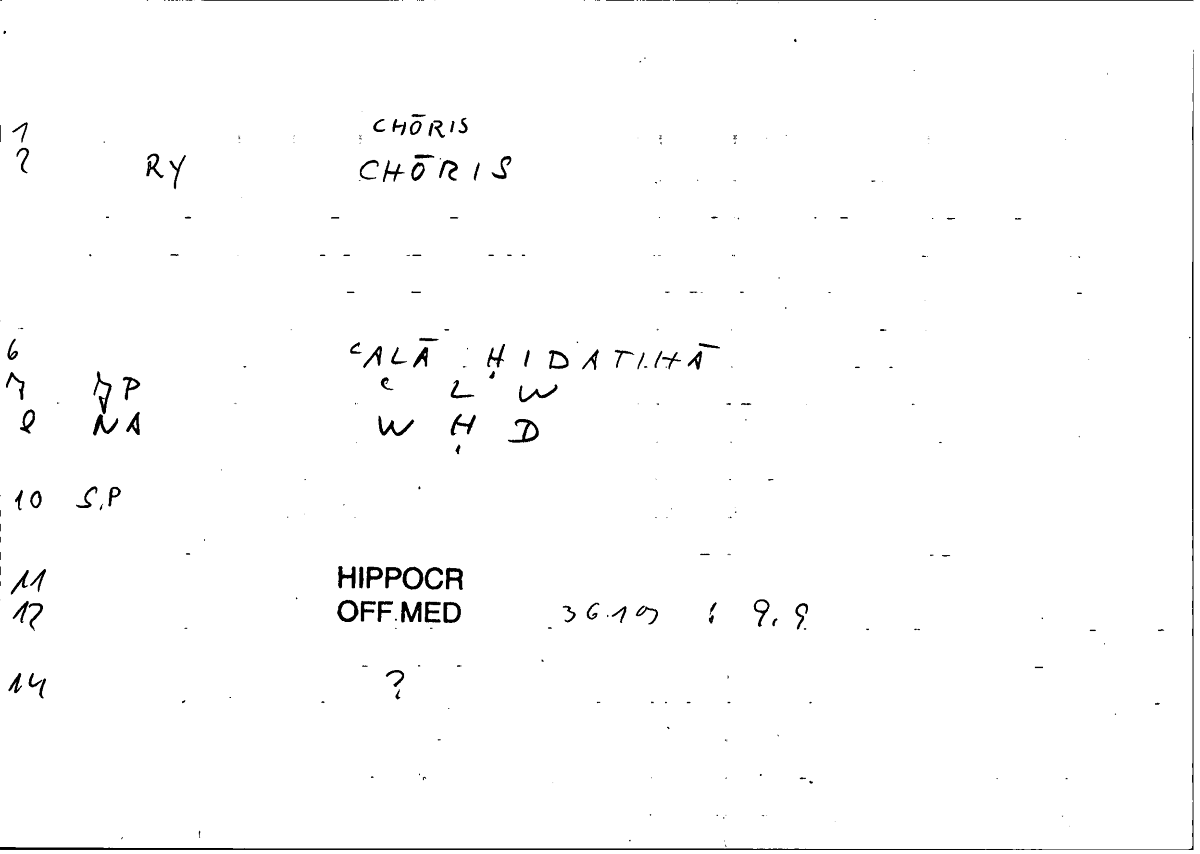 1 CHŌRIS
2 RY CHŌRIS
6 ʿALĀ ḤIDATIHĀ
7 JP ʿ L W
8 NA W Ḥ D
10 S.P
11 HIPPOCR
12 OFF.MED 36.19 : 9.9
14 ?